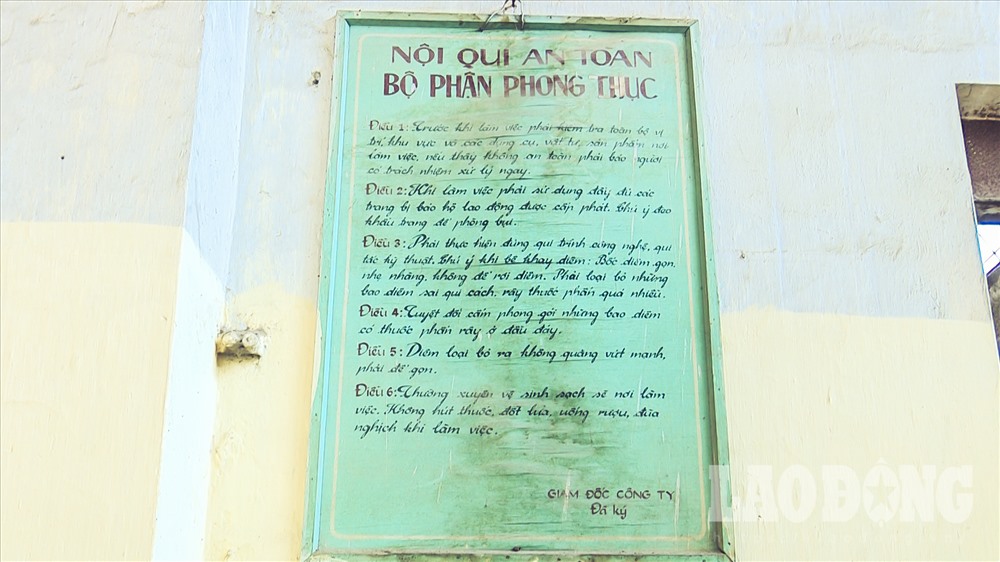 NỘI QUI AN TOÀN
BỘ PHẬN PHONG THỤC
Điều 1: Trước khi làm việc phải kiểm tra toàn bộ vị
trí, khu vực và các dụng cụ, vật tư, sản phẩm nơi
làm việc, nếu thấy không an toàn phải báo người
có trách nhiệm xử lý ngay.
Điều 2: Khi làm việc phải sử dụng đầy đủ các
trang bị bảo hộ lao động được cấp phát. Chú ý đeo
khẩu trang để phòng bụi.
Điều 3: Phải thực hiện đúng qui trình công nghệ, qui
tắc kỹ thuật. Chú ý khi bê khay diêm: Bốc diêm gọn,
nhẹ nhàng, không để rơi diêm. Phải loại bỏ những
bao diêm sai qui cách, rây thuốc phấn quá nhiều.
Điều 4: Tuyệt đối cấm phong gói những bao diêm
có thuốc phấn rây ở đầu đáy.
Điều 5: Diêm loại bỏ ra không quăng vứt mạnh,
phải để gọn.
Điều 6: Thường xuyên vệ sinh sạch sẽ nơi làm
việc. Không hút thuốc, đốt lửa, uống rượu, đùa
nghịch khi làm việc.
GIÁM ĐỐC CÔNG TY
Đã ký
LAO ĐỘNG